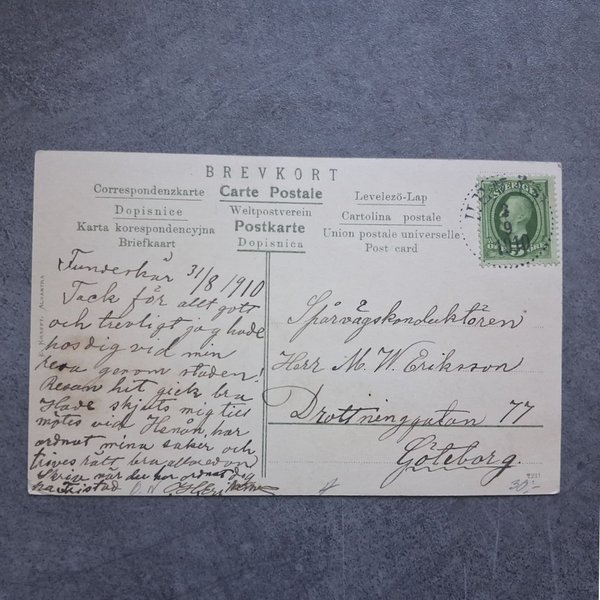 BREVKORT
Correspondenzkarte Carte Postale Levelező-Lap
Dopisnice Weltpostverein Cartolina postale
Karta korespondencyjna Postkarte Union postale universelle
Briefkaart Dopisnica Post card
31/8 1910
Tack för allt gott
och trevligt jag hade
hos dig vid min
resa genom staden!
Resan hit gick bra
Hade skjuts mig till
mötes vid Henån, har
ordnat mina saker och
trives rätt bra allaredan
Skriv när du har ordnat dig
Spårvägskonduktören
Herr M. W. Eriksson
Drottninggatan 77
Göteborg.
SVERIGE
30:-